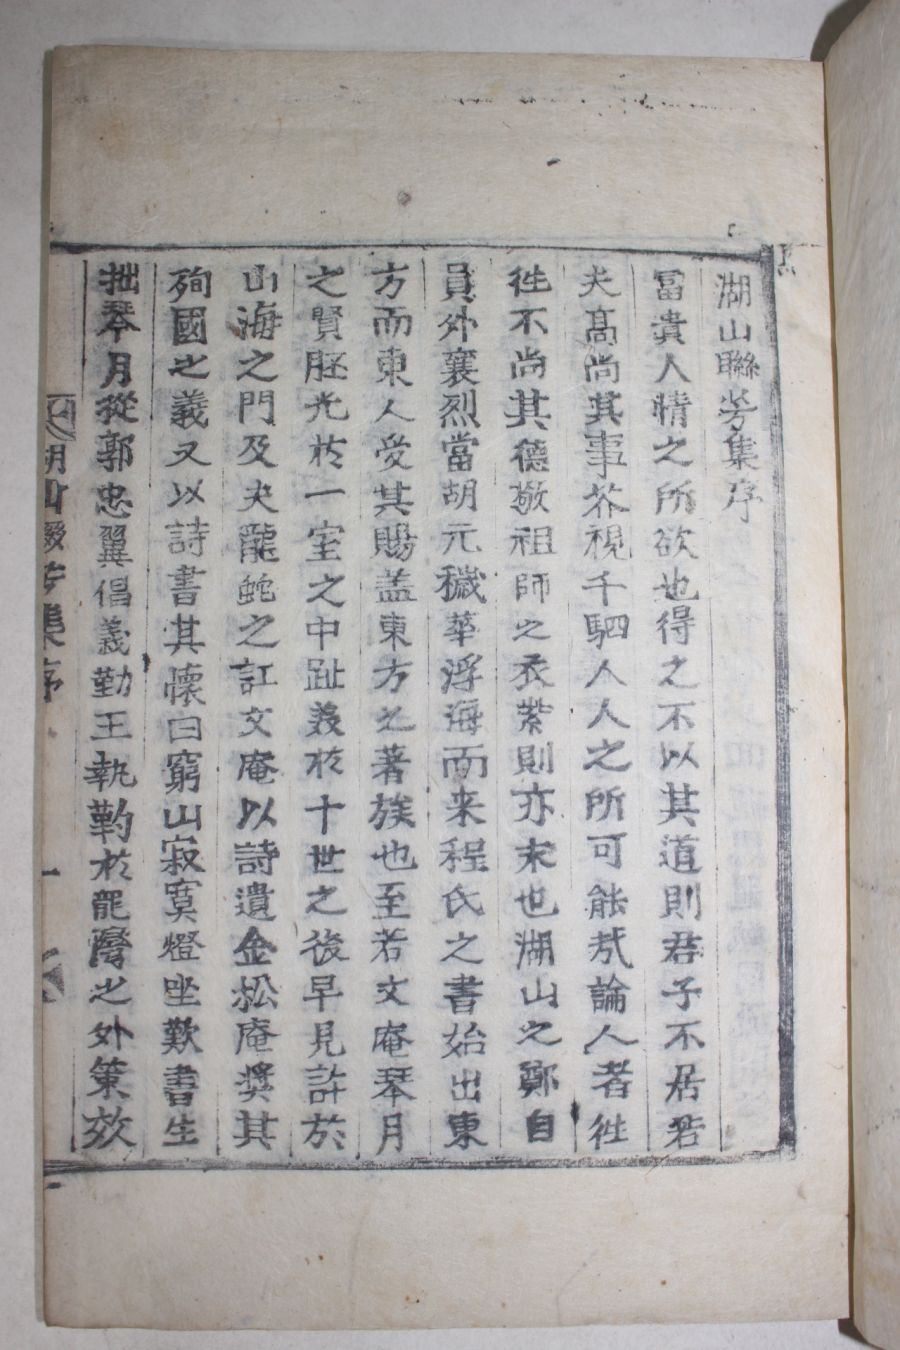 湖山聯芳集序
冨貴人情之所欲也得之不以其道則君子不居若
夫髙尚其事芥視千駟人人之所可能㢤論人者徃
徃不尚其德敬祖師之衣紫則亦末也湖山之鄭自
員外襄烈當胡元穢華浮海而来程氏之書始出東
方而東人受其賜盖東方之著族也至若文庵琴月
之賢胚光於一室之中趾義於十世之後早見許於
山海之門及夫龍蛇之訌文庵以詩遺金松庵奬其
殉國之義又以詩書其懷曰窮山寂寞燈坐歎書生
拙琴月從郭忠翼倡義勤王執靮於龍灣之外策效
湖山聯芳集序
一